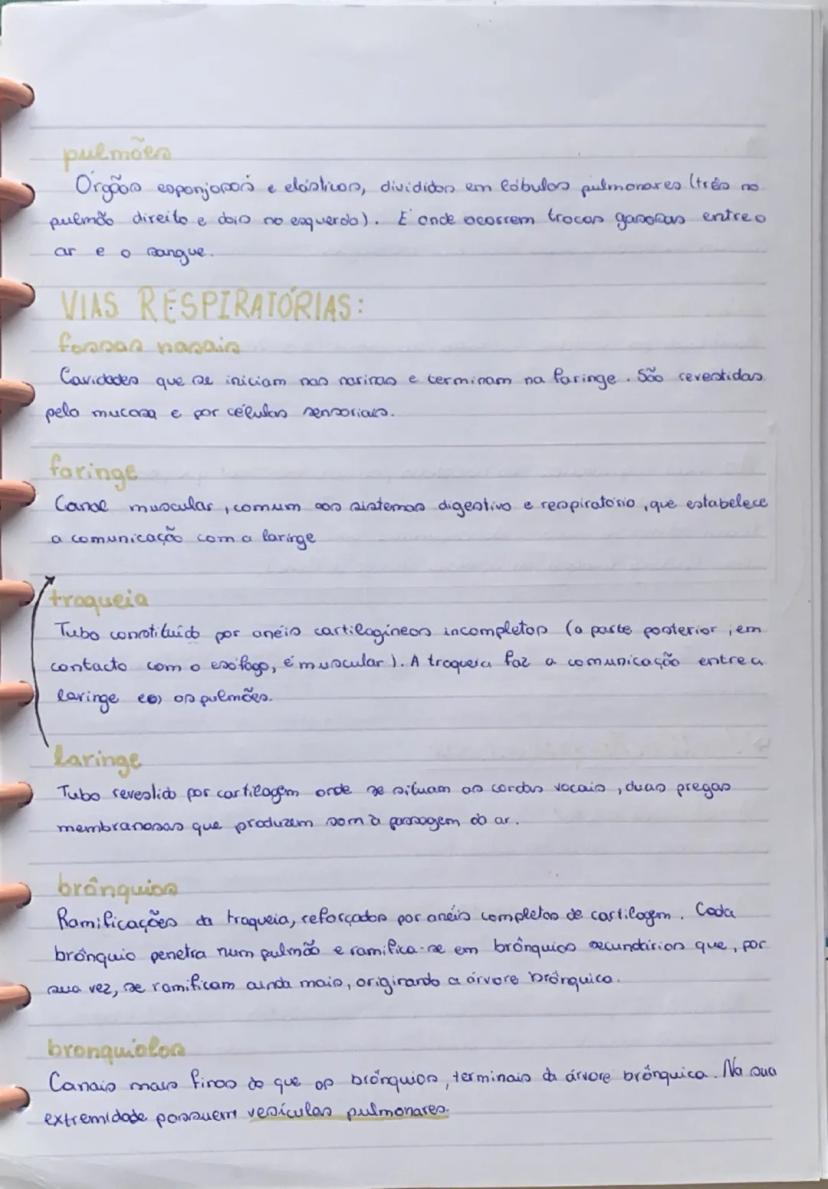 pulmões
Orgãos esponjosos e elásticos, divididos em lóbulos pulmonares (três no
pulmão direito e dois no esquerdo). É onde ocorrem trocas gasosas entre o
ar e o sangue.
VIAS RESPIRATÓRIAS:
fossas nasais
Cavidades que se iniciam nas narinas e terminam na faringe. São revestidas
pelo mucosa e por células sensoriais.
faringe
Canal muscular, comum aos sistemas digestivo e respiratório, que estabelece
a comunicação com a laringe
traqueia
Tubo constituído por anéis cartilagíneos incompletos (a parte posterior, em
contacto com o esófago, é muscular). A traqueia faz a comunicação entre a
laringe e os pulmões.
laringe
Tubo revestido por cartilagem onde se situam as cordas vocais, duas pregas
membranosas que produzem som à passagem do ar.
brônquios
Ramificações da traqueia, reforçados por anéis completos de cartilagem. Cada
brônquio penetra num pulmão e ramifica-se em brônquios secundários que, por
sua vez, se ramificam ainda mais, originando a árvore brônquica.
bronquíolos
Canais mais finos do que os brônquios, terminais da árvore brônquica. Na sua
extremidade possuem vesículas pulmonares.